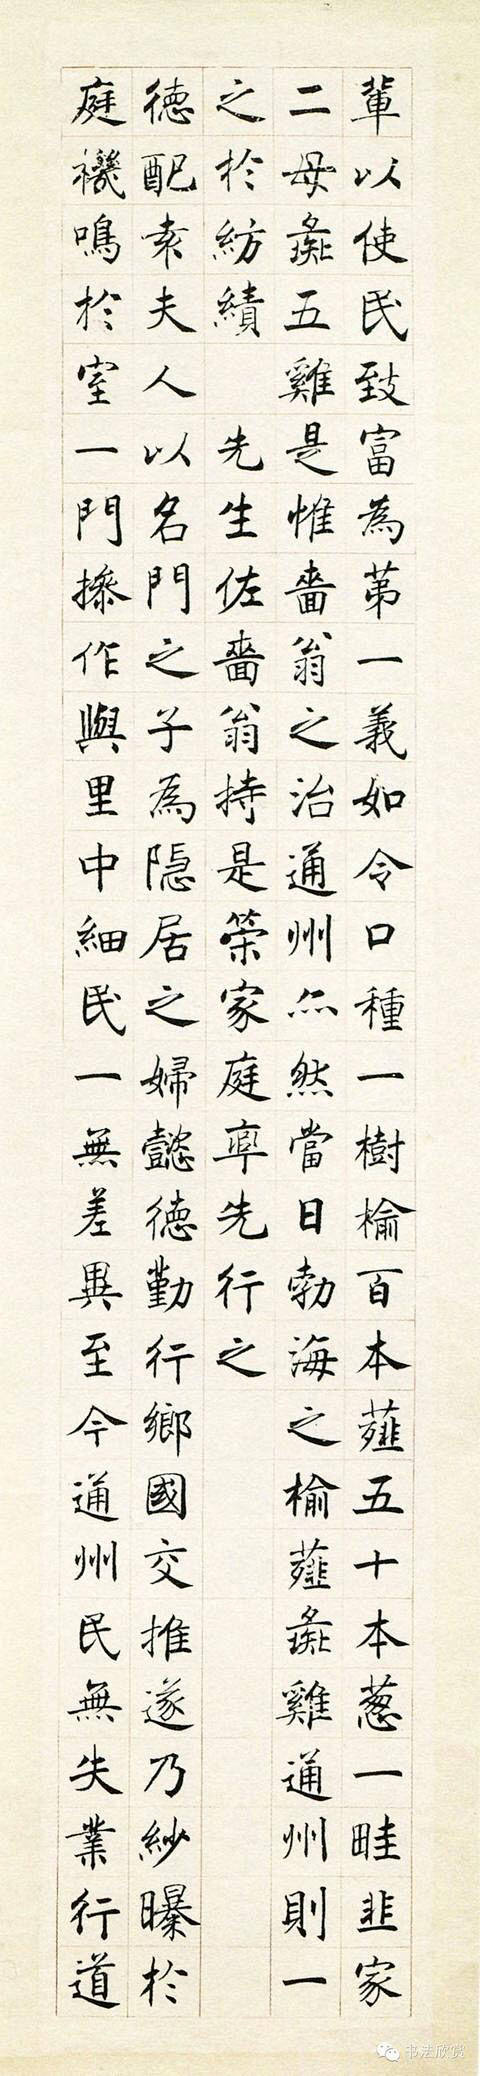 輩以使民致富為第一義如令口種一樹榆百本薤五十本葱一畦韭家
二母彘五雞是惟嗇翁之治通州亦然當日勃海之榆薤彘雞通州則一
之於紡績 先生佐嗇翁持是榮家庭率先行之
德配袁夫人以名門之子為隱居之婦懿德勤行鄉國交推遂乃紗曝於
庭機鳴於室一門操作與里中細民一無差異至今通州民無失業行道
书法欣赏